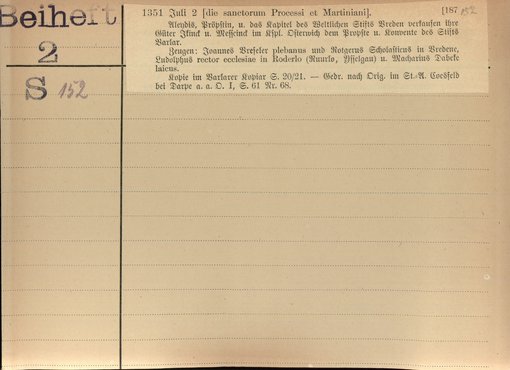 Beiheft
2
S 152
1351 Juli 2 [die sanctorum Processi et Martiniani]. [187 152
Aleydis, Pröpstin, u. das Kapitel des Weltlichen Stifts Vreden verkaufen ihre
Güter Ikinck u. Messinck im Kspl. Osterwich dem Propste u. Konvente des Stifts
Varlar.
Zeugen: Joannes Vreseler plebanus und Rotgerus Scholasticus in Vredene,
Ludolphus rector ecclesiae in Roderlo (Ruurlo, Ysselgau) u. Macharius Dabeke
laicus.
Kopie im Varlarer Kopiar S. 20/21. — Gedr. nach Orig. im St.-A. Coesfeld
bei Darpe a. a. O. I, S. 61 Nr. 68.